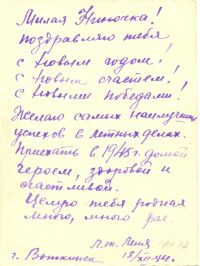 Милая Ниночка!
поздравляю тебя
с новым годом!
с новым счастьем!
с новыми победами!
Желаю самых наилучших
успехов в летных делах.
Приехать в 1945 г. домой
героем, здоровой и
счастливой.
Целую тебя родная
много, много раз.
г. Воткинск